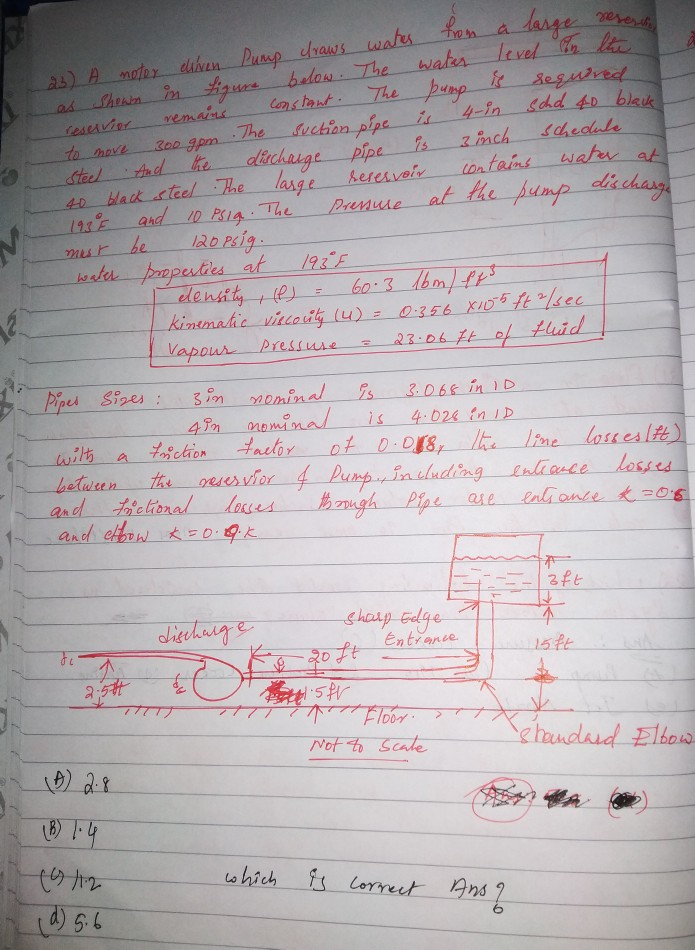 23) A motor driven Pump draws water from a large
as shown in figure below. The water level in the
reservior remains constant. The pump is required
to move 300 gpm. The suction pipe is 4-in schd 40 black
steel. And the discharge pipe is 3 inch schedule
40 black steel. The large reservoir contains water at
193°F and 10 PSIg. The pressure at the pump discharge
must be 120 psig.
water properties at 193°F
density, (ρ) = 60.3 lbm/ft³
Kinematic viscocity (u) = 0.356 x10⁻⁵ ft²/sec
Vapour Pressure = 23.06 ft of fluid
Pipes Sizes : 3 in nominal is 3.068 in ID
4 in nominal is 4.026 in ID
with a friction factor of 0.018, the line losses (ft)
between the reservior & Pump, including entrance losses
and frictional losses through pipe are entrance k = 0.5
and elbow k = 0.9.k
3 ft
sharp Edge
Entrance
discharge
20 ft
15 ft
2.5 ft
1.5 ft
Floor.
Standard Elbow
Not to Scale
(A) 2.8
(B) 1.4
(C) 11.2 which is correct Ans?
(d) 5.6